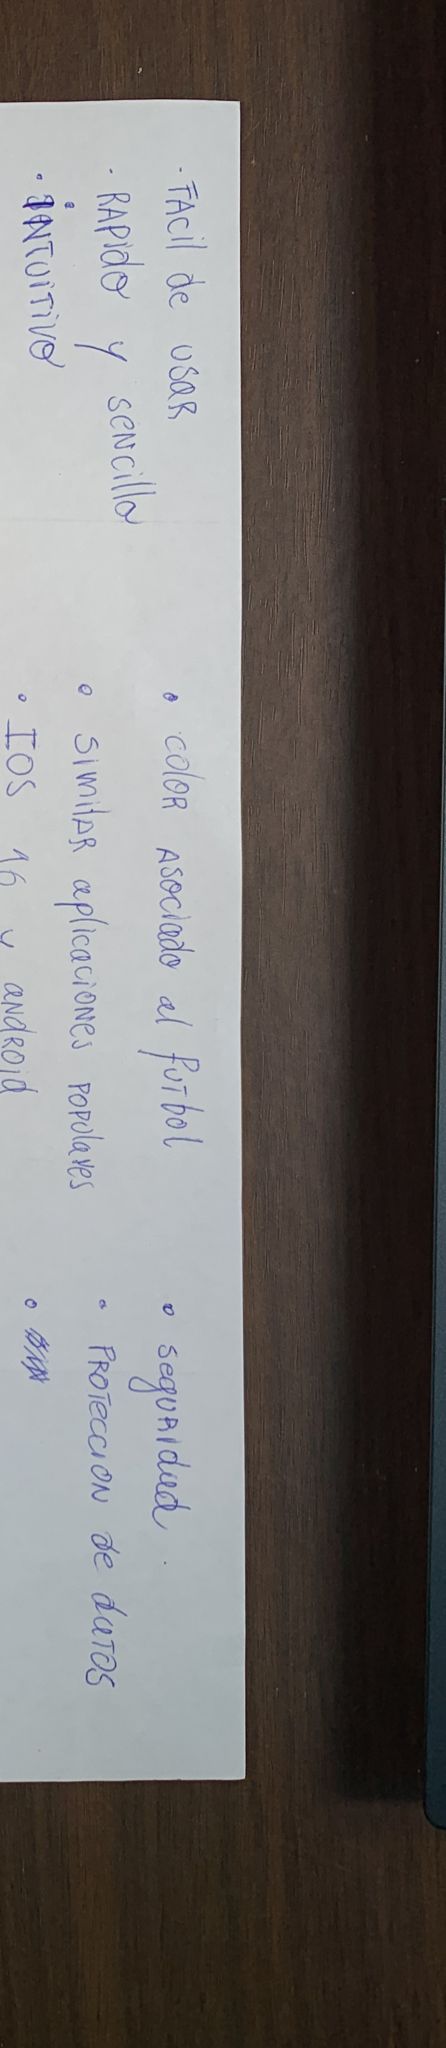 · FACil de USAR
· RAPido y SENCillo
· iNTUiTiVO
• COlOR ASOCiado al fUTbol
• SiMilAR aplicaciones POPUlares
• IOS 16 y ANDROID
• SegURIdad.
• PROTECCION de daTOS